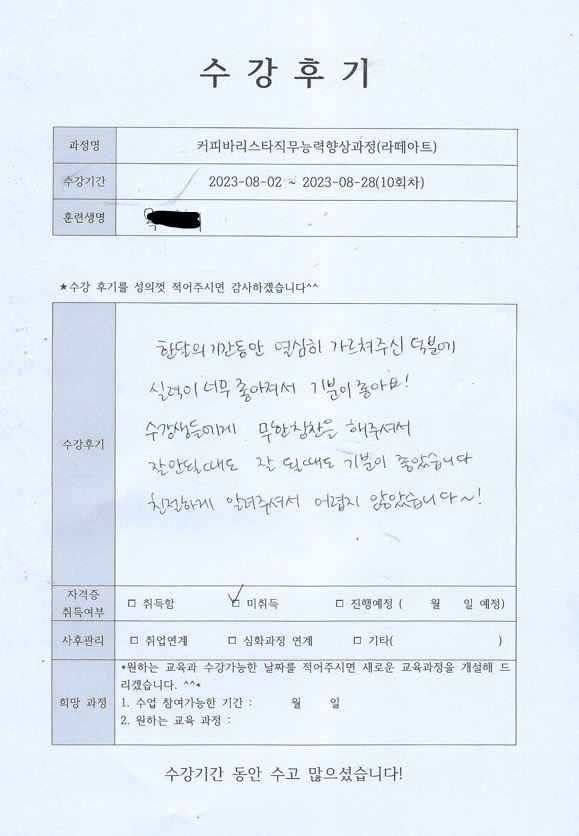 수 강 후 기
과정명 커피바리스타직무능력향상과정(라떼아트)
수강기간 2023-08-02 ~ 2023-08-28(10회차)
훈련생명
★수강 후기를 성의껏 적어주시면 감사하겠습니다^^
수강후기
한달의 기간동안 열심히 가르쳐주신 덕분에
실력이 너무 좋아져서 기분이 좋아요!
수강생들에게 무한칭찬을 해주셔서
잘안될때도 잘 될때도 기분이 좋았습니다
친절하게 알려주셔서 어렵지 않았습니다~!
자격증 취득여부 □ 취득함 □ 미취득 □ 진행예정 ( 월 일 예정)
사후관리 □ 취업연계 □ 심화과정 연계 □ 기타( )
희망 과정
*원하는 교육과 수강가능한 날짜를 적어주시면 새로운 교육과정을 개설해 드
리겠습니다. ^^*
1. 수업 참여가능한 기간 : 월 일
2. 원하는 교육 과정 :
수강기간 동안 수고 많으셨습니다!